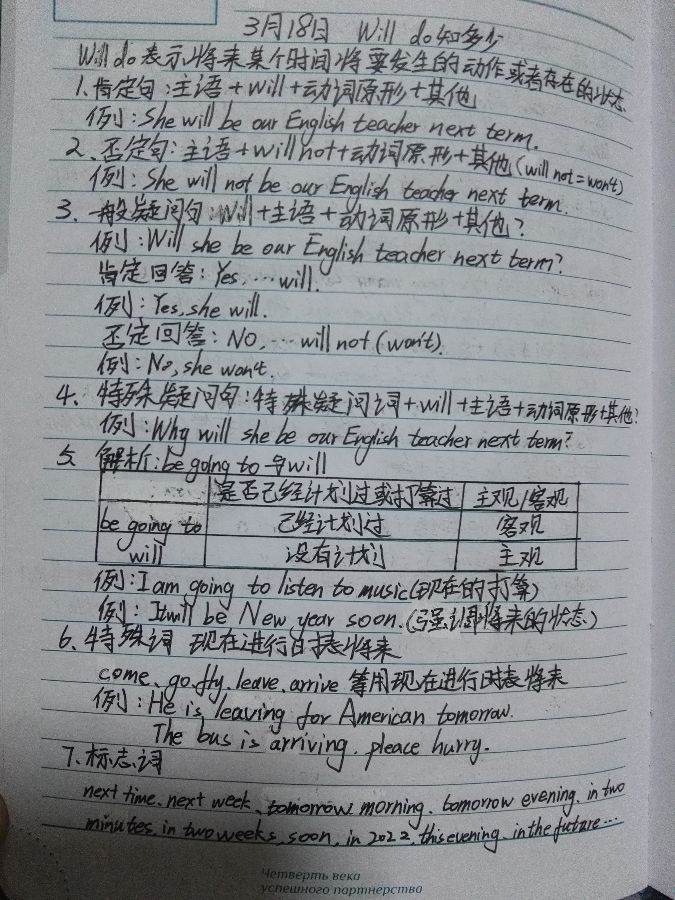 3月18日 Will do知多少
Will do表示将来某个时间将要发生的动作或者存在的状态
1.肯定句:主语+will+动词原形+其他
例:She will be our English teacher next term.
2、否定句:主语+will not+动词原形+其他(will not=won't)
例:She will not be our English teacher next term.
3.一般疑问句:Will+主语+动词原形+其他?
例:Will she be our English teacher next term?
肯定回答:Yes,…will.
例:Yes,she will.
否定回答:NO,…will not(won't).
例:No,she won't.
4、特殊疑问句:特殊疑问词+will+主语+动词原形+其他?
例:Why will she be our English teacher next term?
5、解析:be going to与will
是否已经计划过或打算过 主观/客观
be going to 已经计划过 客观
will 没有计划 主观
例:I am going to listen to music(现在的打算)
例:It will be New year soon.(强调将来的状态)
6、特殊词 现在进行时表将来
come、go、fly、leave、arrive 等用现在进行时表将来
例:He is leaving for American tomorrow.
The bus is arriving, pleace hurry.
7、标志词
next time、next week、tomorrow morning、tomorrow evening、in two
minutes、in two weeks、soon、in 2022、this evening、in the future…
Четверть века
успешного партнерства